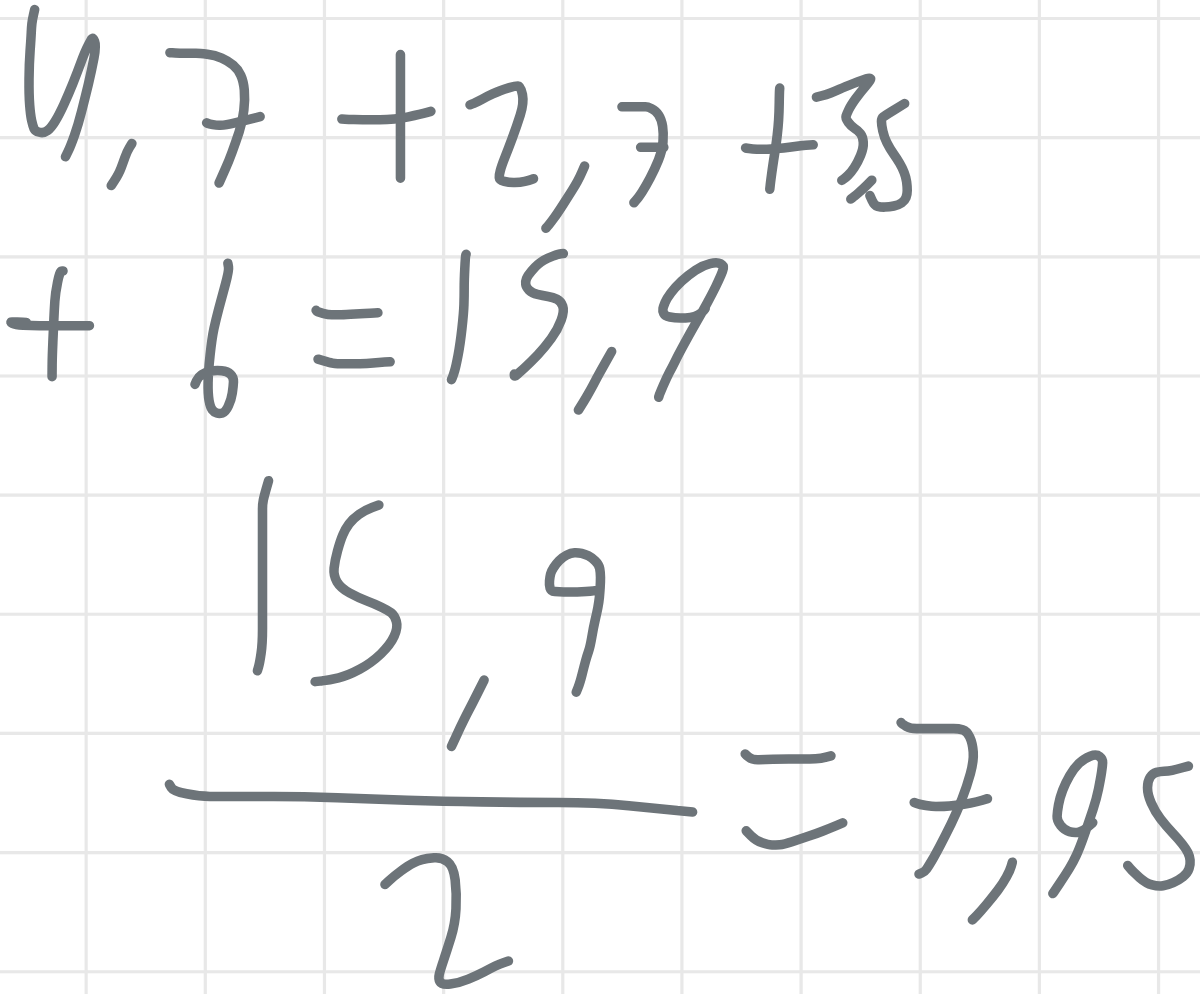 4,7 + 2,7 + 3,5
+ 6 = 15,9
15,9
= 7,95
2